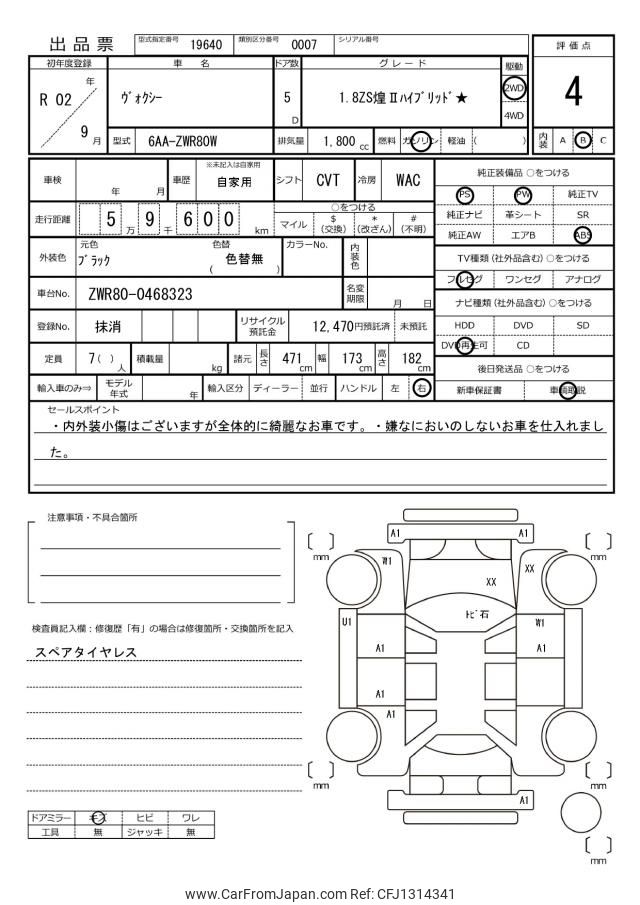 出品票
型式指定番号 19640 類別区分番号 0007 シリアル番号
評価点
4
内装 A B C
初年度登録 車名 ドア数 グレード 駆動
R 02 年 9 月
ヴォクシー
5 D
1.8ZS煌Ⅱハイブリッド★
2WD
4WD
型式 6AA-ZWR80W 排気量 1,800 cc 燃料 ガソリン 軽油 ( )
車検 年 月 車歴 ※未記入は自家用 自家用 シフト CVT 冷房 WAC
走行距離 5 万 9 千 6 0 0 km
○をつける
マイル $ (交換) * (改ざん) # (不明)
外装色 元色 ブラック 色替 ( 色替無 ) カラーNo. 内装色
車台No. ZWR80-0468323 名変期限 月 日
登録No. 抹消 リサイクル預託金 12,470円預託済 未預託
定員 7( )人 積載量 kg 諸元 長さ 471 cm 幅 173 cm 高さ 182 cm
輸入車のみ⇒ モデル年式 年 輸入区分 ディーラー 並行 ハンドル 左 右
純正装備品 ○をつける
PS PW 純正TV
純正ナビ 革シート SR
純正AW エアB ABS
TV種類 (社外品含む) ○をつける
フルセグ ワンセグ アナログ
ナビ種類 (社外品含む) ○をつける
HDD DVD SD
DVD再生可 CD
後日発送品 ○をつける
新車保証書 車輌取説
セールスポイント
・内外装小傷はございますが全体的に綺麗なお車です。・嫌なにおいのしないお車を仕入れまし
た。
注意事項・不具合箇所
検査員記入欄：修復歴「有」の場合は修復箇所・交換箇所を記入
スペアタイヤレス
A1 A1
W1 XX
XX
トビ石
U1 W1
A1 A1
A1
A1
A1
mm mm
mm mm
mm
ドアミラー キズ ヒビ ワレ
工具 無 ジャッキ 無
www.CarFromJapan.com Ref: CFJ1314341